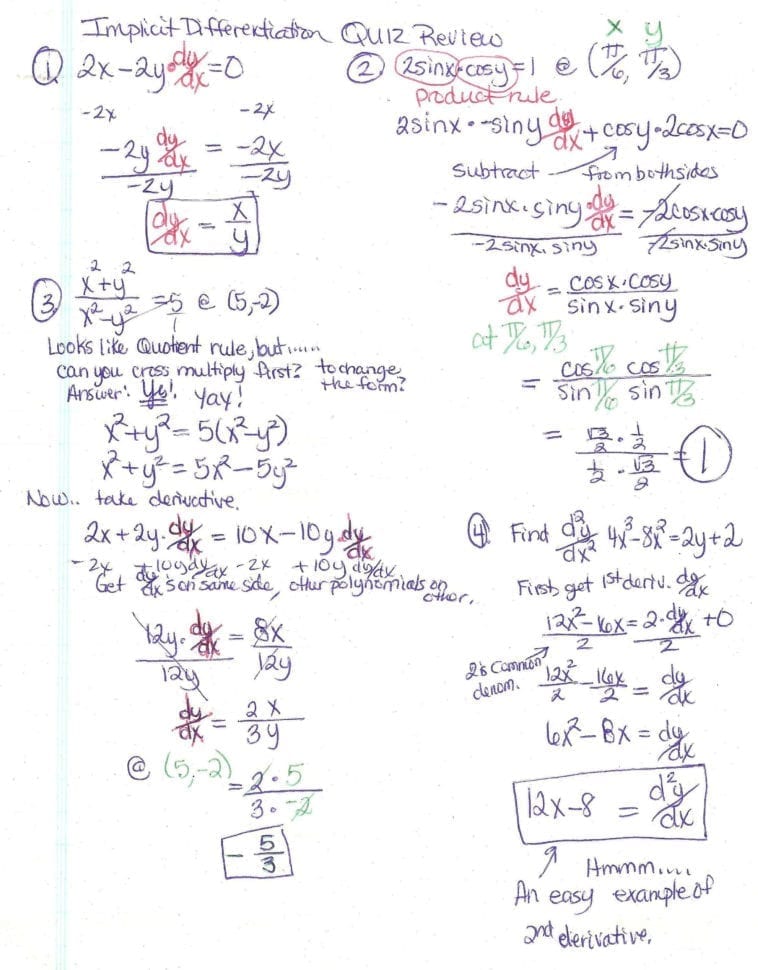 Implicit Differentiation Quiz Review
① 2x-2y·dy/dx=0
-2x -2x
-2y dy/dx = -2x
-2y -2y
dy/dx = x/y
x y
② 2sinx·cosy=1 @ (π/6, π/3)
product rule
2sinx·-siny dy/dx + cosy·2cosx=0
subtract from both sides
-2sinx·siny·dy/dx = -2cosx·cosy
-2sinx·siny -2sinx·siny
dy/dx = cosx·cosy / sinx·siny
at π/6, π/3
= cos π/6 cos π/3 / sin π/6 sin π/3
= √3/2 · 1/2 / 1/2 · √3/2 = 1
③ x²+y² / x²-y² =5 @ (5,-2)
Looks like Quotient rule, but......
can you cross multiply first? to change
the form?
Answer: Yes! Yay!
x²+y²=5(x²-y²)
x²+y²=5x²-5y²
Now.. take derivative.
2x+2y·dy/dx = 10x-10y·dy/dx
-2x +10y dy/dx -2x +10y dy/dx
Get dy/dx's on same side, other polynomials on
other.
12y·dy/dx = 8x
12y 12y
dy/dx = 2x/3y
@ (5,-2) = 2·5 / 3·-2
-5/3
④ Find d²y/dx² 4x³-8x²=2y+2
First, get 1st deriv. dy/dx
12x²-16x=2·dy/dx+0
2 2
2 is common
denom.
12x²/2 - 16x/2 = dy/dx
6x²-8x=dy/dx
12x-8 = d²y/dx
Hmmm....
An easy example of
2nd derivative.